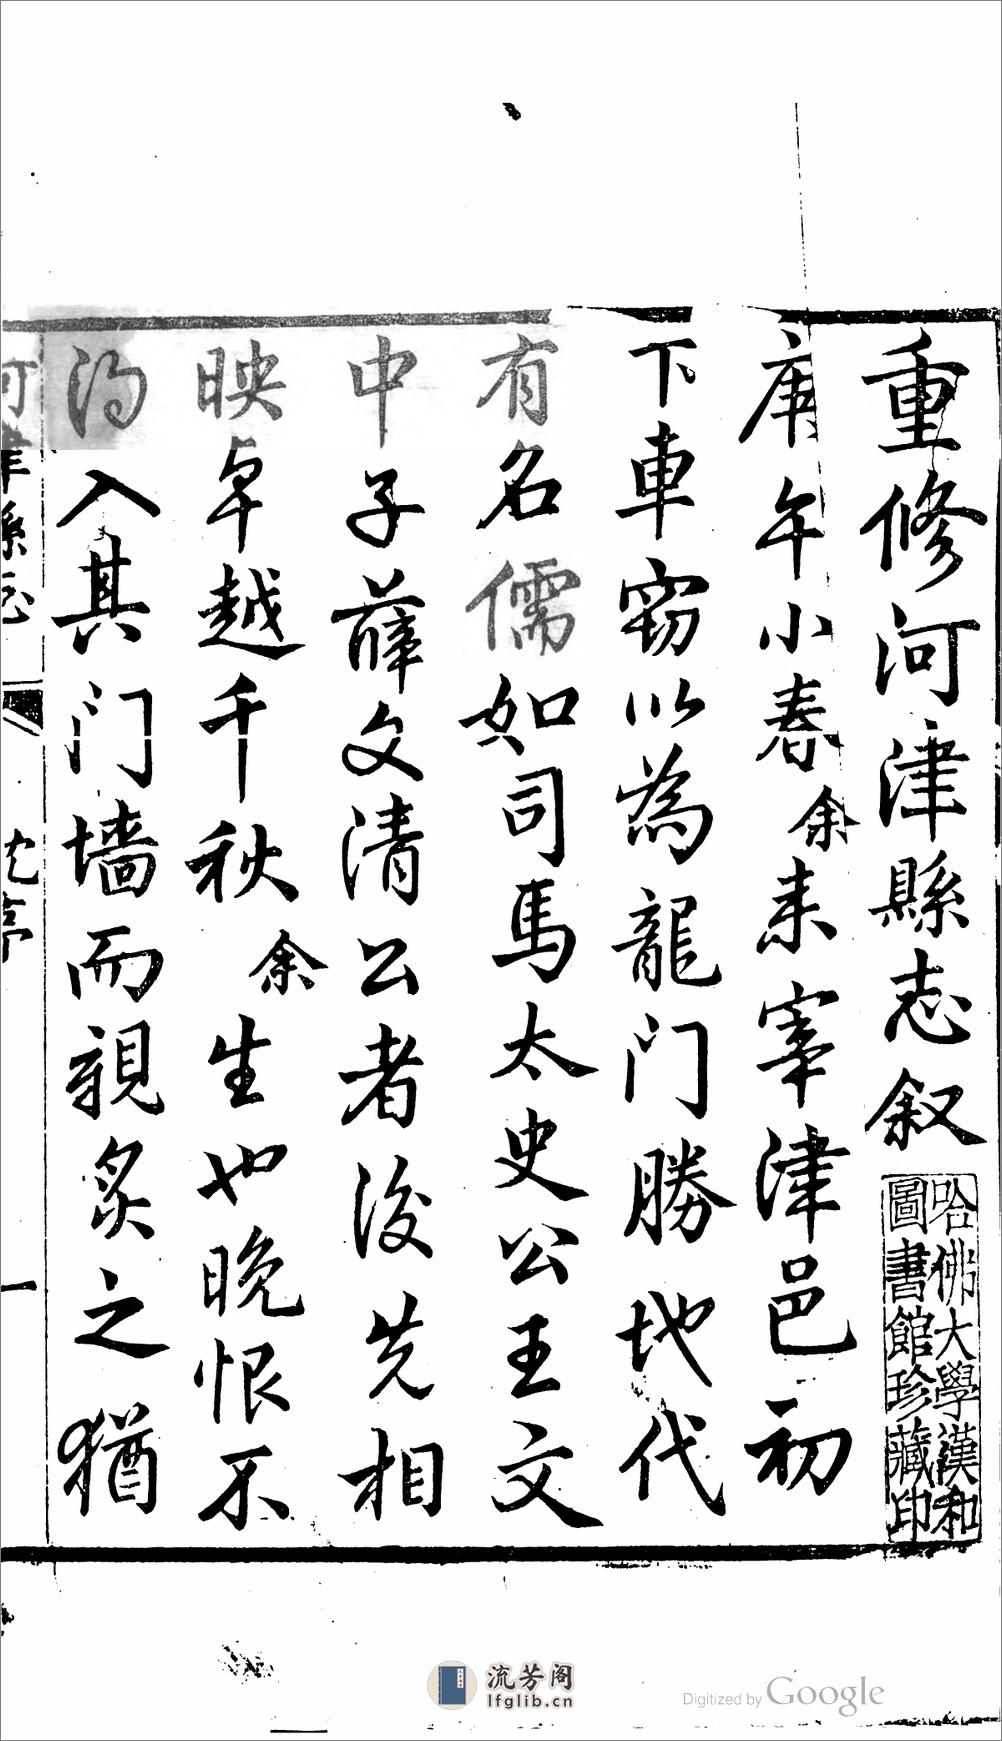 重修河津縣志叙
哈佛大學漢和
圖書館珍藏印
庚午小春余来宰津邑初
下車窃以為龍门勝地代
有名儒如司馬太史公王文
中子薛文清公者後先相
映卓越千秋余生也晚恨不
得入其门墙而親炙之猶
河津縣志
一
流芳阁
lfglib.cn
Digitized by Google